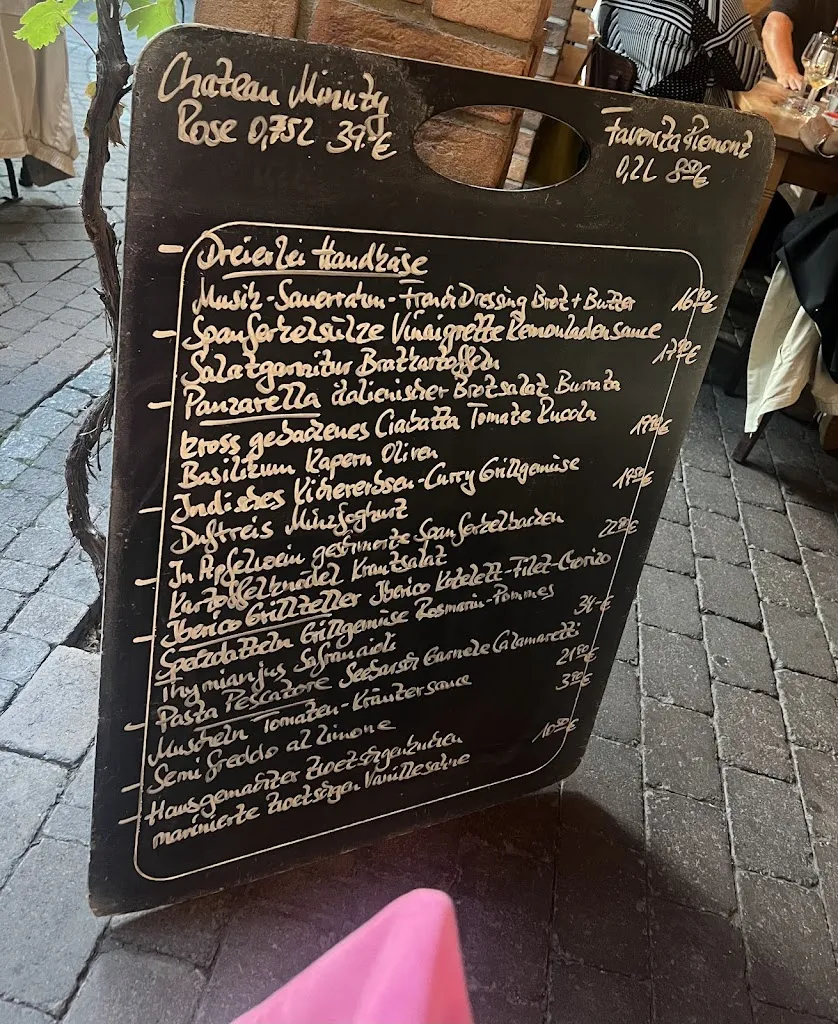 Chateau Minuty
Rose 0,75L 39.-€
Favorita Piemont
0,2L 8⁵⁰€
– Dreierlei Handkäse
Musik-Sauerrahm-French Dressing Brot + Butter 16⁹⁰€
– Spanferkelsülze Vinaigrette Remouladensauce
Salatgarnitur Bratkartoffeln 17⁹⁰€
– Panzarella italienischer Brotsalat Burrata
kross gebackenes Ciabatta Tomate Rucola
Basilikum Kapern Oliven
– Indisches Kichererbsen-Curry Grillgemüse
Duftreis Minzjoghurt
– In Apfelwein geschmorte Spanferkelbacken
Kartoffelknödel Krautsalat
– Iberico Grillteller Iberico Kotelett-Filet-Chorizo
Speckdatteln Grillgemüse Rosmarin-Pommes
Thymianjus Safranaioli 34.-€
– Pasta Pescatore Seebarsch Garnele Calamaretti
Muscheln Tomaten-Kräutersauce
– Semifreddo al Limone
– Hausgemachter Zwetschgenkuchen
marinierte Zwetschgen Vanillesahne